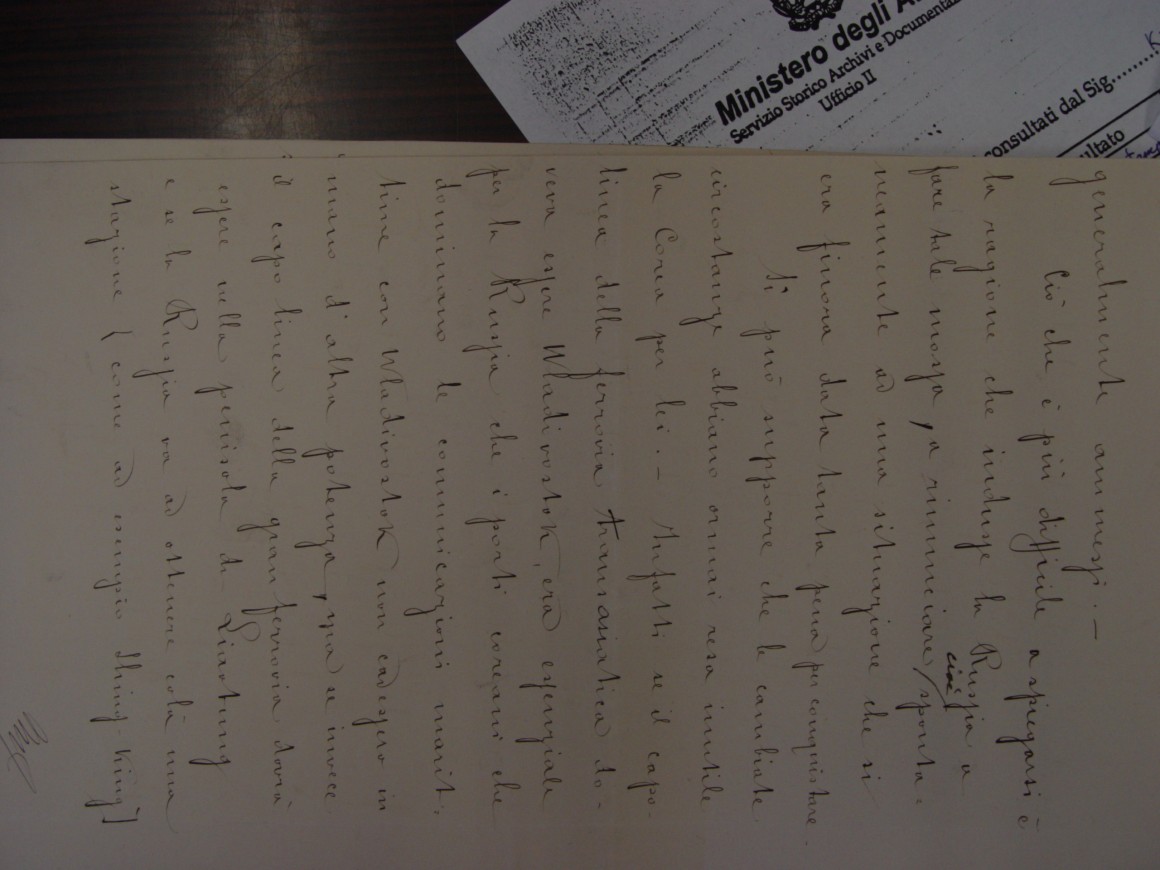 Ministero degli A
Servizio Storico Archivi e Documenta
Ufficio II
consultati dal Sig.......
ultato
generalmente ammessi. —
Ciò che è più difficile a spiegarsi è
la ragione che indusse la Russia a
fare tale mossa, a rinunciare, cioè sponta-
neamente ad una situazione che si
era finora data tanta pena per conquistare.
Si può supporre che le cambiate
circostanze abbiano ormai resa inutile
la Corea per lei. — Infatti se il capo-
linea della ferrovia transasiatica do-
veva essere Wladivostok, era essenziale
per la Russia che i porti coreani che
dominano le comunicazioni marit-
time con Wladivostok non cadessero in
mano d'altra potenza, ma se invece
il capo linea della gran ferrovia dovrà
essere nella penisola di Liaotung
e se la Russia va ad ottenere colà una
stazione (come ad esempio Shing-King)